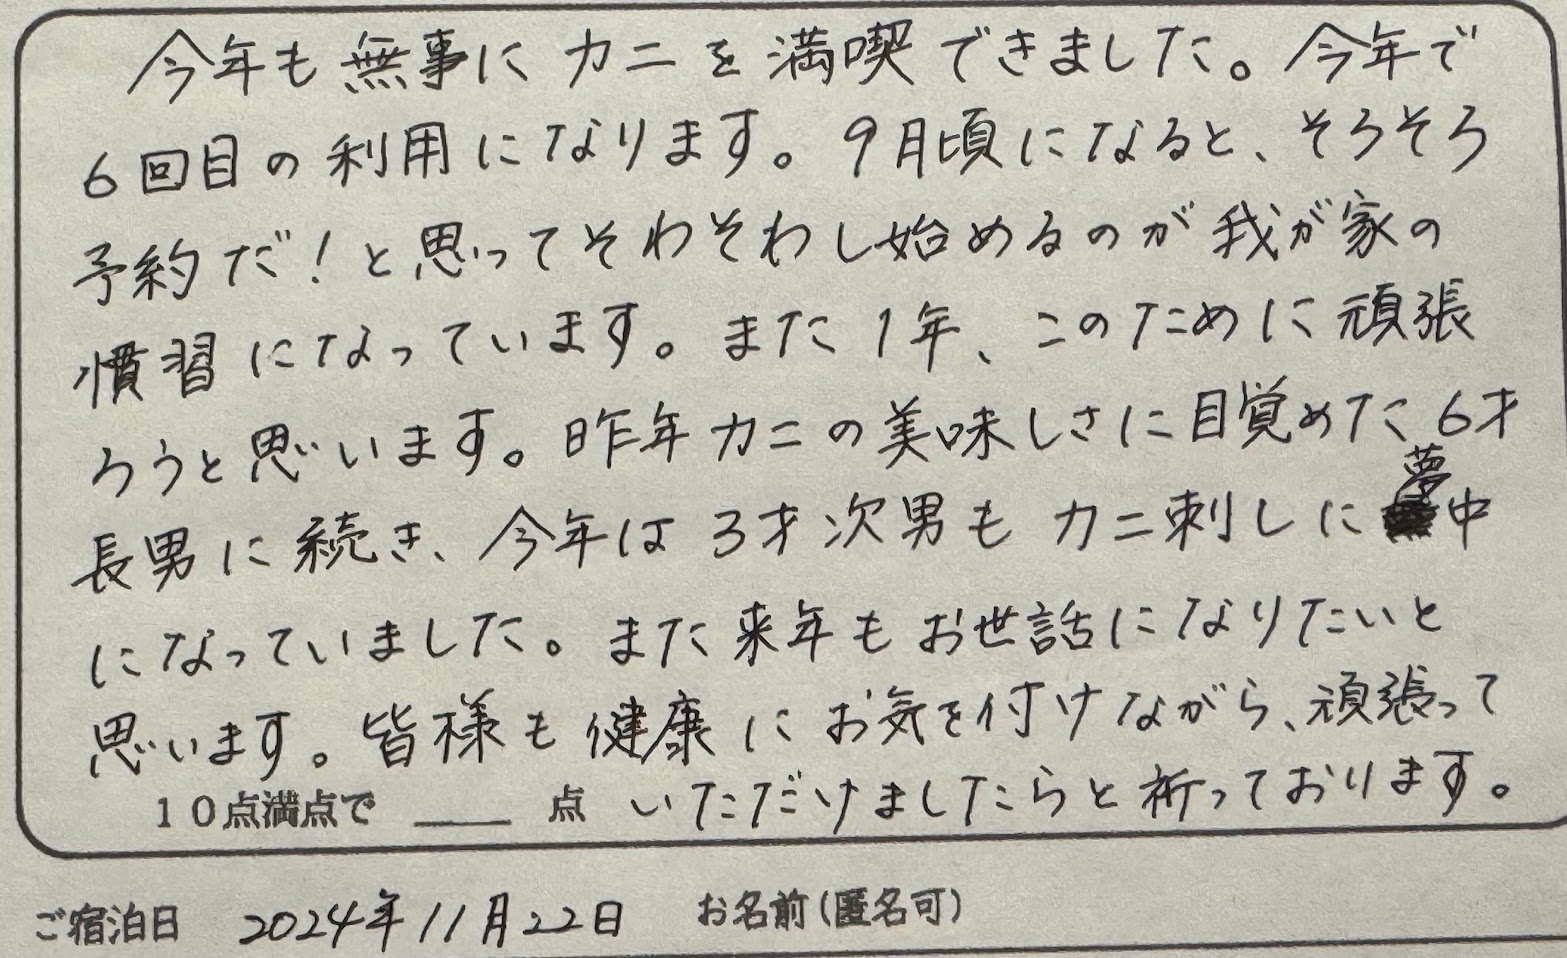 今年も無事にカニを満喫できました。今年で
6回目の利用になります。9月頃になると、そろそろ
予約だ!と思ってそわそわし始めるのが我が家の
慣習になっています。また1年、このために頑張
ろうと思います。昨年カニの美味しさに目覚めた6才
長男に続き、今年は3才次男もカニ刺しに夢中
になっていました。また来年もお世話になりたいと
思います。皆様も健康にお気を付けながら、頑張って
10点満点で ____ 点 いただけましたらと祈っております。
ご宿泊日 2024年11月22日 お名前(匿名可)